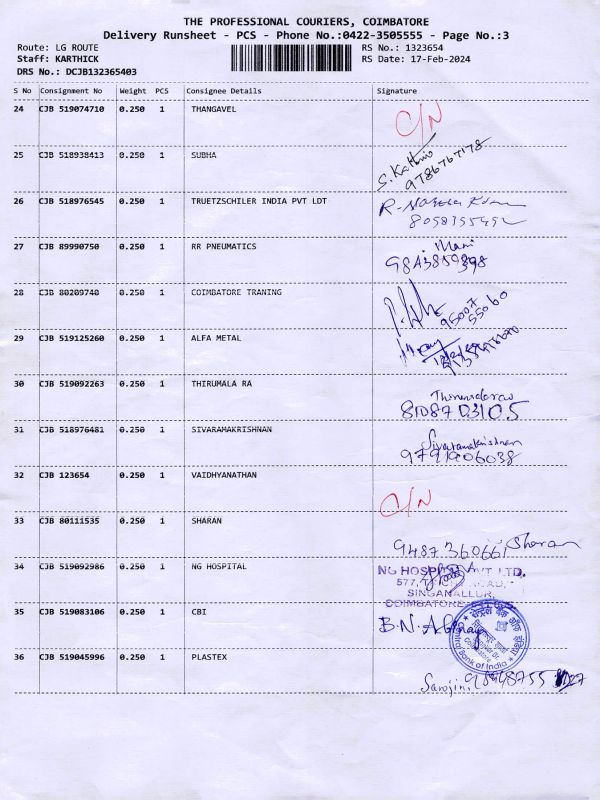 THE PROFESSIONAL COURIERS, COIMBATORE
Delivery Runsheet - PCS - Phone No.:0422-3505555 - Page No.:3
Route: LG ROUTE RS No.: 1323654
Staff: KARTHICK RS Date: 17-Feb-2024
DRS No.: DCJB132365403
S No Consignment No Weight PCS Consignee Details Signature
24 CJB 519074710 0.250 1 THANGAVEL C/N
25 CJB 518938413 0.250 1 SUBHA
9786767178
26 CJB 518976545 0.250 1 TRUETZSCHILER INDIA PVT LDT
27 CJB 89990750 0.250 1 RR PNEUMATICS Mani
28 CJB 80209740 0.250 1 COIMBATORE TRANING
29 CJB 519125260 0.250 1 ALFA METAL
30 CJB 519092263 0.250 1 THIRUMALA RA
8108703105
31 CJB 518976481 0.250 1 SIVARAMAKRISHNAN Sivaramakrishnan
9791906038
32 CJB 123654 0.250 1 VAIDHYANATHAN
C/N
33 CJB 80111535 0.250 1 SHARAN
9487360661 Sharan
34 CJB 519092986 0.250 1 NG HOSPITAL NG HOSPITAL PVT. LTD.
577,
SINGANALLUR,
COIMBATORE
35 CJB 519083106 0.250 1 CBI B.N. Abhinay
Central Bank of India
36 CJB 519045996 0.250 1 PLASTEX
Sarojini